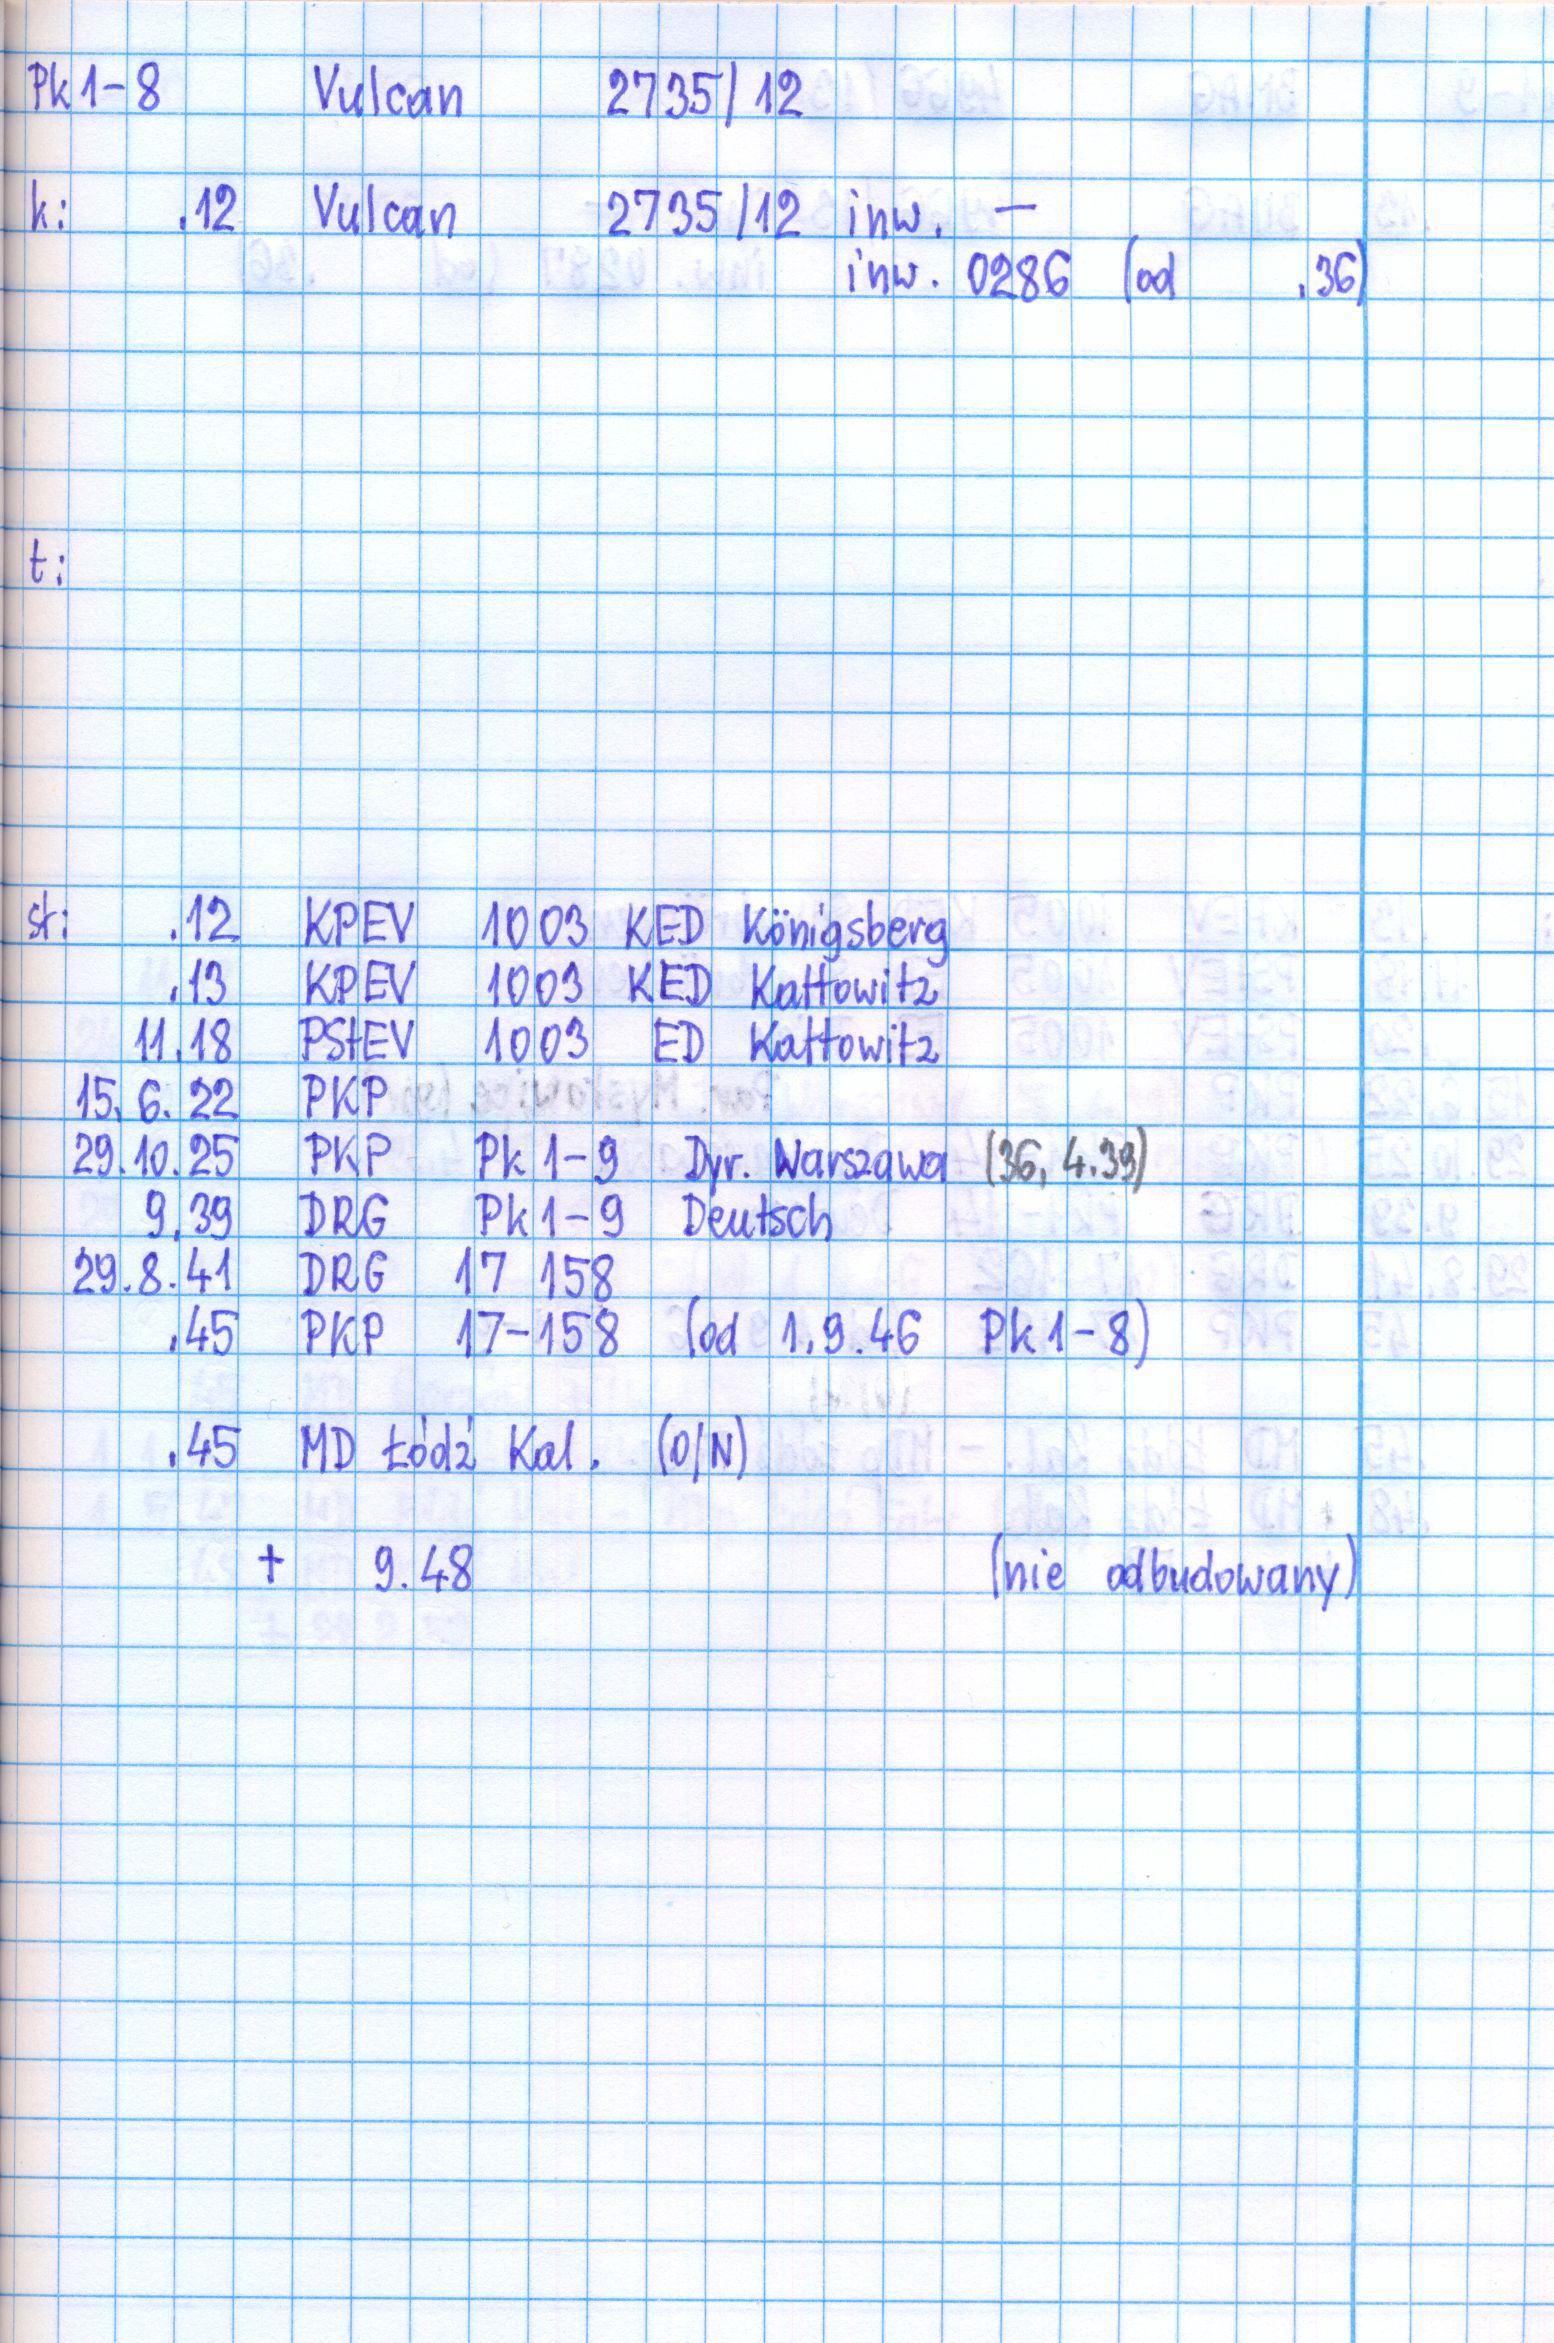 Pk1-8 Vulcan 2735/12
k: .12 Vulcan 2735/12 inw. —
inw. 0286 (od .36)
t:
st: .12 KPEV 1003 KED Königsberg
.13 KPEV 1003 KED Kattowitz
11.18 PStEV 1003 ED Kattowitz
15.6.22 PKP
29.10.25 PKP Pk1-9 Dyr. Warszawa (36, 4.39)
9.39 DRG Pk1-9 Deutsch
29.8.41 DRG 17 158
.45 PKP 17-158 (od 1.9.46 Pk1-8)
.45 MD Łódź Kal. (O/N)
+ 9.48 (nie odbudowany)